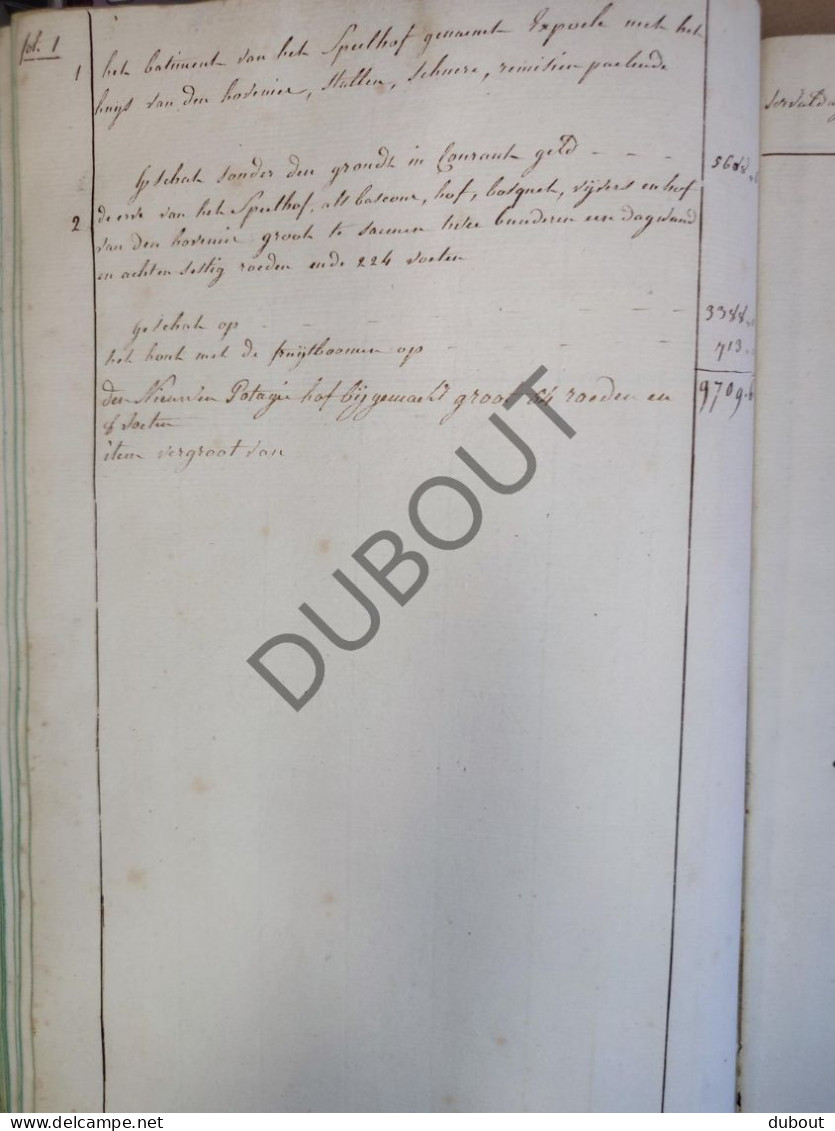 fol. 1
1 het batiment van het Speelhof genaemt Expoele met het
huys van den hovenier, Stallen, Schuere, remisien paelende
Geschat sonder den grondt in Courant geld - - - 5688
2 de erve van het Speelhof, als bascour, hof, bosquet, vijvers en hof
van den hovenier groot te saemen twee bunderen een dagwand
en achten sestig roeden ende 224 voeten
geschat op - - - - - 3388
het hout met de fruytboomen op - - - - 713
9709.6
den Nieuwen Potagie hof bijgemaekt groot 84 roeden en
8 voeten
item vergroot van
DUBOUT
delcampe.net
dubout